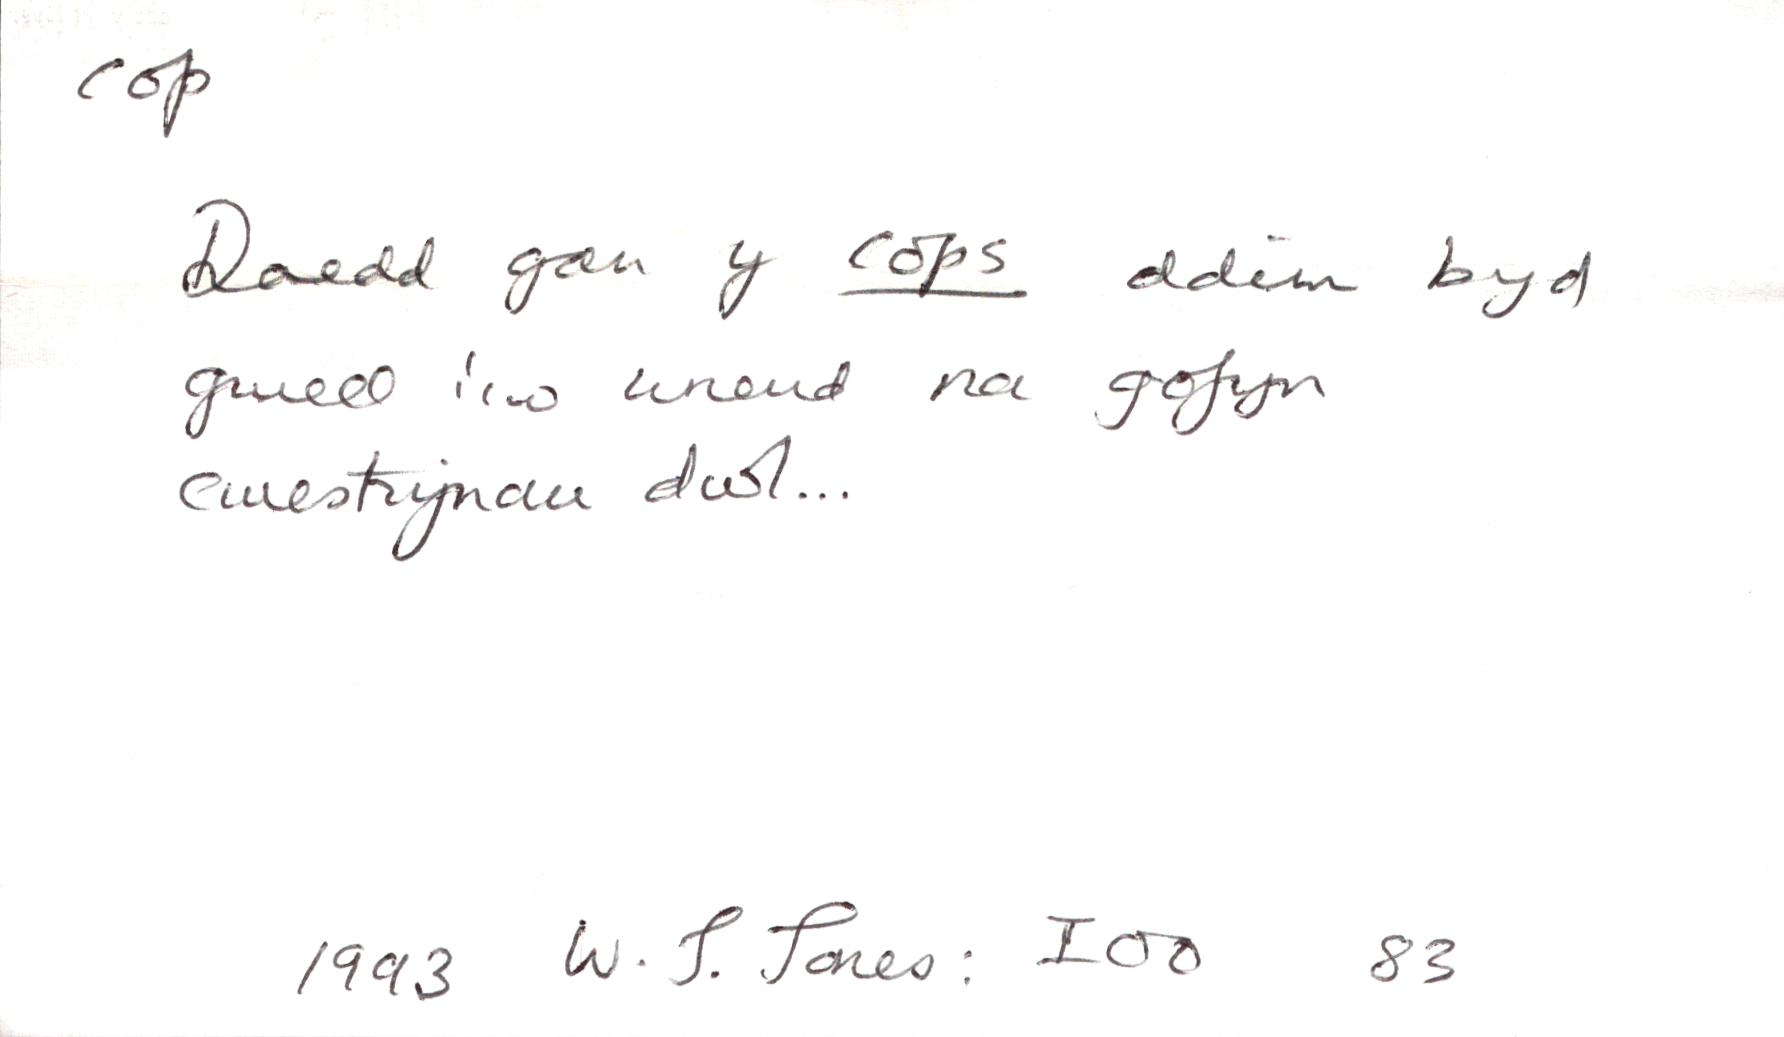 cop
Doedd gan y cops ddim byd
gwell iw wneud na gofyn
cwestiynau dwl...
1993 W. S. Jones: IOO 83